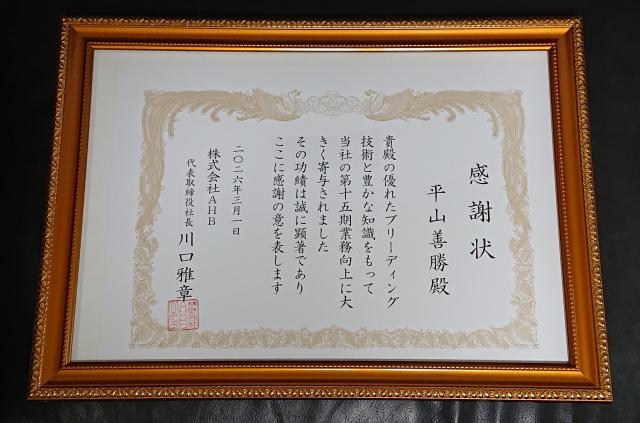 感謝状
平山善勝殿
貴殿の優れたブリーディング
技術と豊かな知識をもって
当社の第十五期業務向上に大
きく寄与されました
その功績は誠に顕著であり
ここに感謝の意を表します
二〇二六年三月一日
株式会社AHB
代表取締役社長 川口雅章